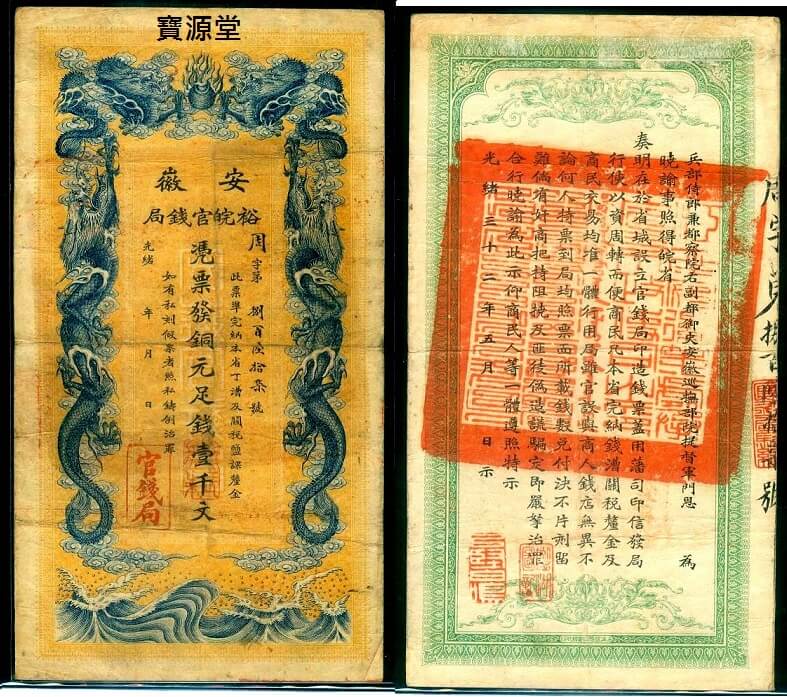 寶源堂
安徽
裕皖官錢局
周字第捌百陸拾柒號
此票準完納本省丁漕及關稅鹽課釐金
憑票發銅元足錢壹千文
如有私刻假票者照私鑄例治罪
光緒 年 月 日
官錢局
兵部侍郎兼都察院右副都御史安徽巡撫部院提督軍門恩 為
曉諭事照得皖省
奏明在於省城設立官錢局印造錢票蓋用藩司印信發局
行使以資周轉而便商民凡本省完納錢漕關稅釐金及
商民交易均准一體行用局雖官設與商人錢店無異不
論何人持票到局均照票面所載錢數兌付決不片刻留
難倘有奸商把持阻撓及匪徒偽造誆騙定即嚴拏治罪
合行曉諭為此示仰商民人等一體遵照特示
光緒三十二年五月 日示